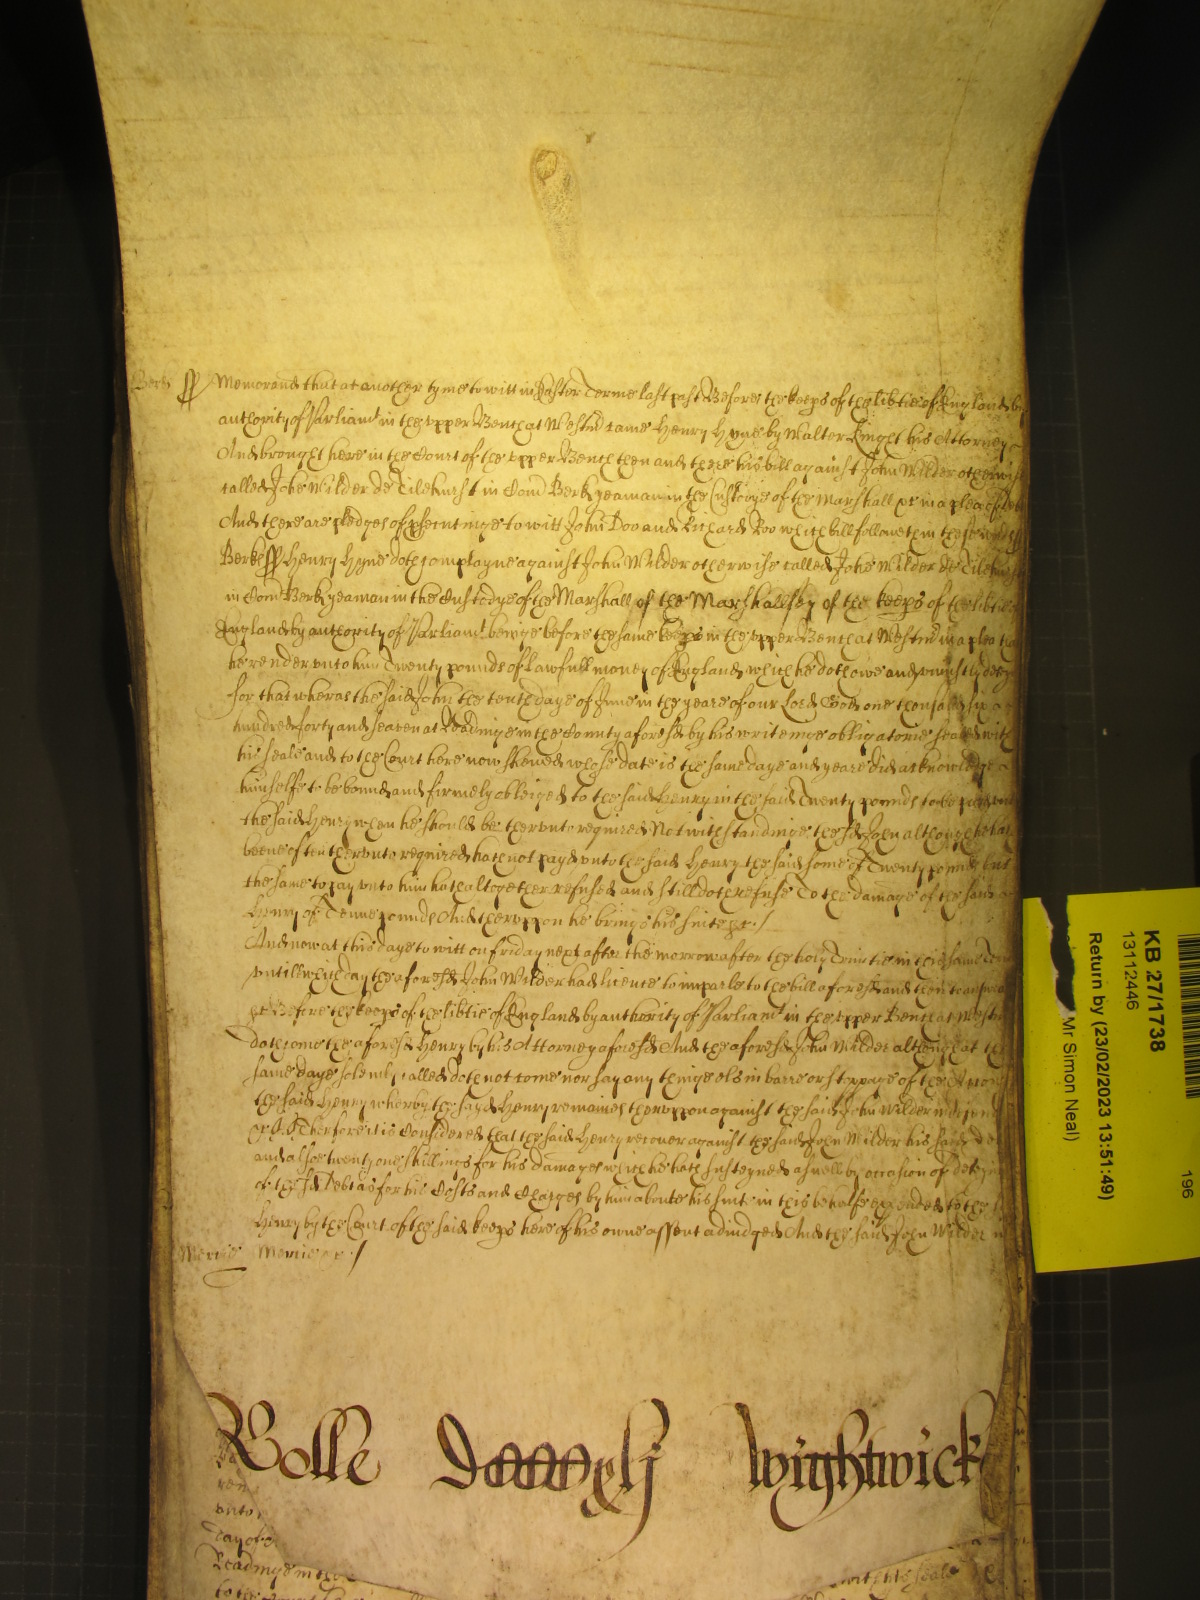 Berk ss Memorand that at another tyme to witt in Easter Terme last past Before the keeps of the libtie of England by
authority of Parliamt in the vpper Bench at Westm came Henry Hyne by Walter Knight his Attorney
And brought here in the Court of the vpper Bench then and there his bill against John Wilder otherwise
called John Wilder de Tilehurst in Com Berk yeaman in the Custodye of the Marshall &c in a plea of debt
And there are pledges of psecutinge to witt John Doo and Richard Roo which bill followeth in these words ss
Berks ss Henry Hyne doth complayne against John Wilder otherwise called John Wilder de Tilehurst
in Com Berk yeaman in the Custodye of the Marshall of the Marshallsey of the keeps of the libtie
England by authority of Parliamt beinge before the same keeps in the vpper Bench at Westm in a plea that
he render vnto him Twenty pounds of lawfull money of England which he doth owe and vniustly deteyne
for that wheras the said John the tenth daye of June in the yeare of our Lord God one thousand six
hundred forty and seaven at Readinge in the County aforesd by his writeinge obligatorie sealed with
his seale and to the Court here now shewed whose date is the same daye and yeare did acknowledge
himselfe to be bound and firmely obleiged to the said Henry in the said Twenty pounds to be payd vnto
the said Henry when he should be thervnto required Notwithstandinge the sd John although he hath
beene often thervnto required hath not payd vnto the said Henry the said some of Twenty pounds but
the same to pay vnto him hath altogether refused and still doth refuse To the damage of the said
Henry of Tenne pounds And thervppon he brings his suite &c /
And now at this daye to witt on Friday next after the morrow after the holy Trinitie in this same Terme
vntill which day the aforesd John Wilder had licence to imparle to the bill aforesd and then to answear
&c Before the keeps of the libtie of England by authority of Parliamt in the vpper Bench at Westm
doth come the aforesd Henry by his Attorney aforesd And the aforesd John Wilder although at the
same daye solemly called doth not come nor say any thinge els in barre or stoppage of the Accon
the said Henry wherby the sayd Henry remaines thervppon against the said John Wilder
Therfore it is Considered that the said Henry recover against the said John Wilder his said debt
and alsoe twenty one shillings for his damages which he hath susteyned aswell by occasion of deteyninge
of the sd Debt as for his Costs and Charges by him aboute his suit in this behalfe expended to the sd
Henry by the Court of the said keeps here of his owne assent adiudged And the said John Wilder in
Mercie Mercie &c /
Rolle Wightwick
vnto
Day of
Readinge in the
to the
with his seale
KB 27/1738
13112446
Return by (23/02/2023 13:51:49)
Mr Simon Neal)
196